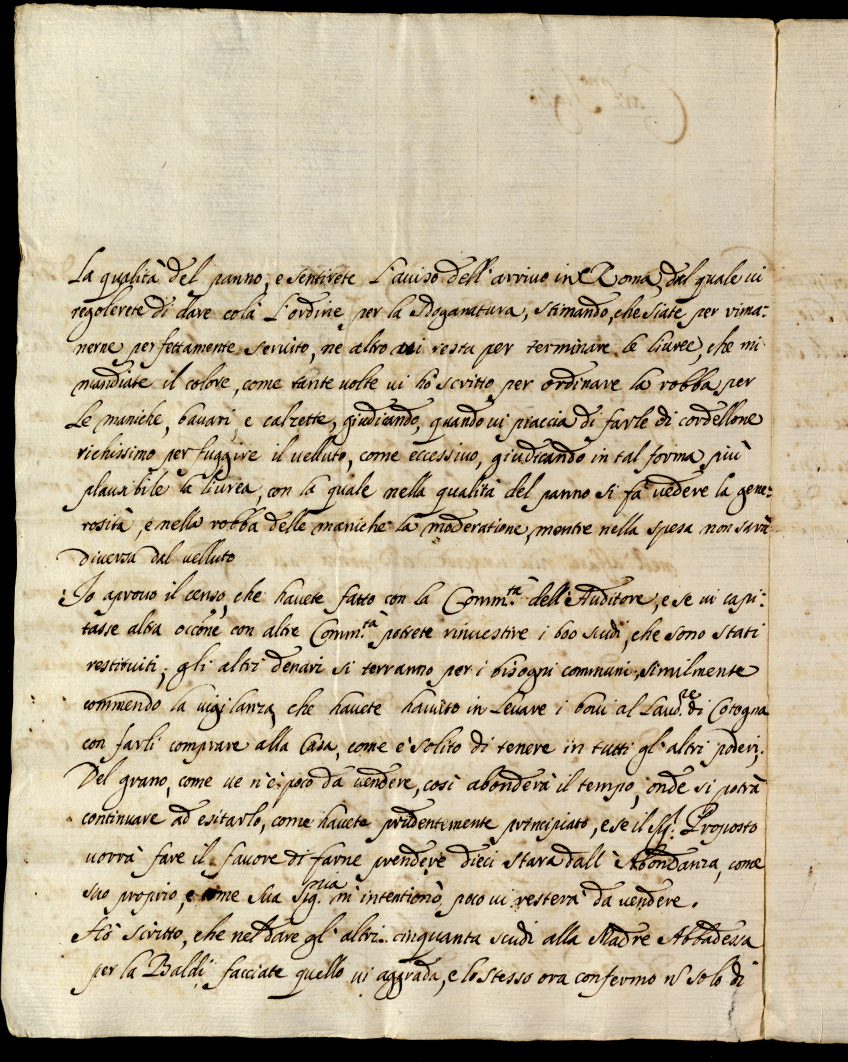 La qualità del panno, e sentirete l'auiso dell'arriuo in Roma, dal quale ui
regolerete di dare colà l'ordine per la sdoganatura, stimando, che siate per rima:
nerne perfettamente seruito, ne altro ui resta per terminare le liuree, che mi
mandiate il colore, come tante uolte ui hò scritto per ordinare la robba per
le maniche, bauari, e calzette, giudicando, quando ui piaccia di farle di cordellone
richissimo per fuggire il uelluto, come eccessiuo, giudicando in tal forma più
plausibile la liurea, con la quale nella qualità del panno si fà uedere la gene:
rosità, e nella robba delle maniche la moderatione, mentre nella spesa non sarà
diuersa dal uelluto
Io aprouo il censo, che hauete fatto con la Comm.tà dell'Auditore, e se ui capi:
tasse altra occ.ne con altre Comm.tà potrete rinuestire i 600 scudi, che sono stati
restituiti; gli altri denari si terranno per i bisogni communi; similmente
commendo la uigilanza, che hauete hauuto in leuare i boui al Lau.re di Cotogna
con farli comprare alla Casa, come è solito di tenere in tutti gl'altri poderi;
Del grano, come ue n'è poco da uendere, così abonderà il tempo, onde si potrà
continuare ad esitarlo, come hauete prudentemente principiato, e se il Sig.r Proposto
uorrà fare il fauore di farne prendere dieci stara dall'Abondanza, come
suo proprio, e come Sua Sig.ria m'intentionò, poco ui resterà da uendere.
Hò scritto, che nel dare gl'altri cinquanta scudi alla Madre Abbadessa
per la Baldi facciate quello ui aggrada, e lo stesso ora confermo nō solo di